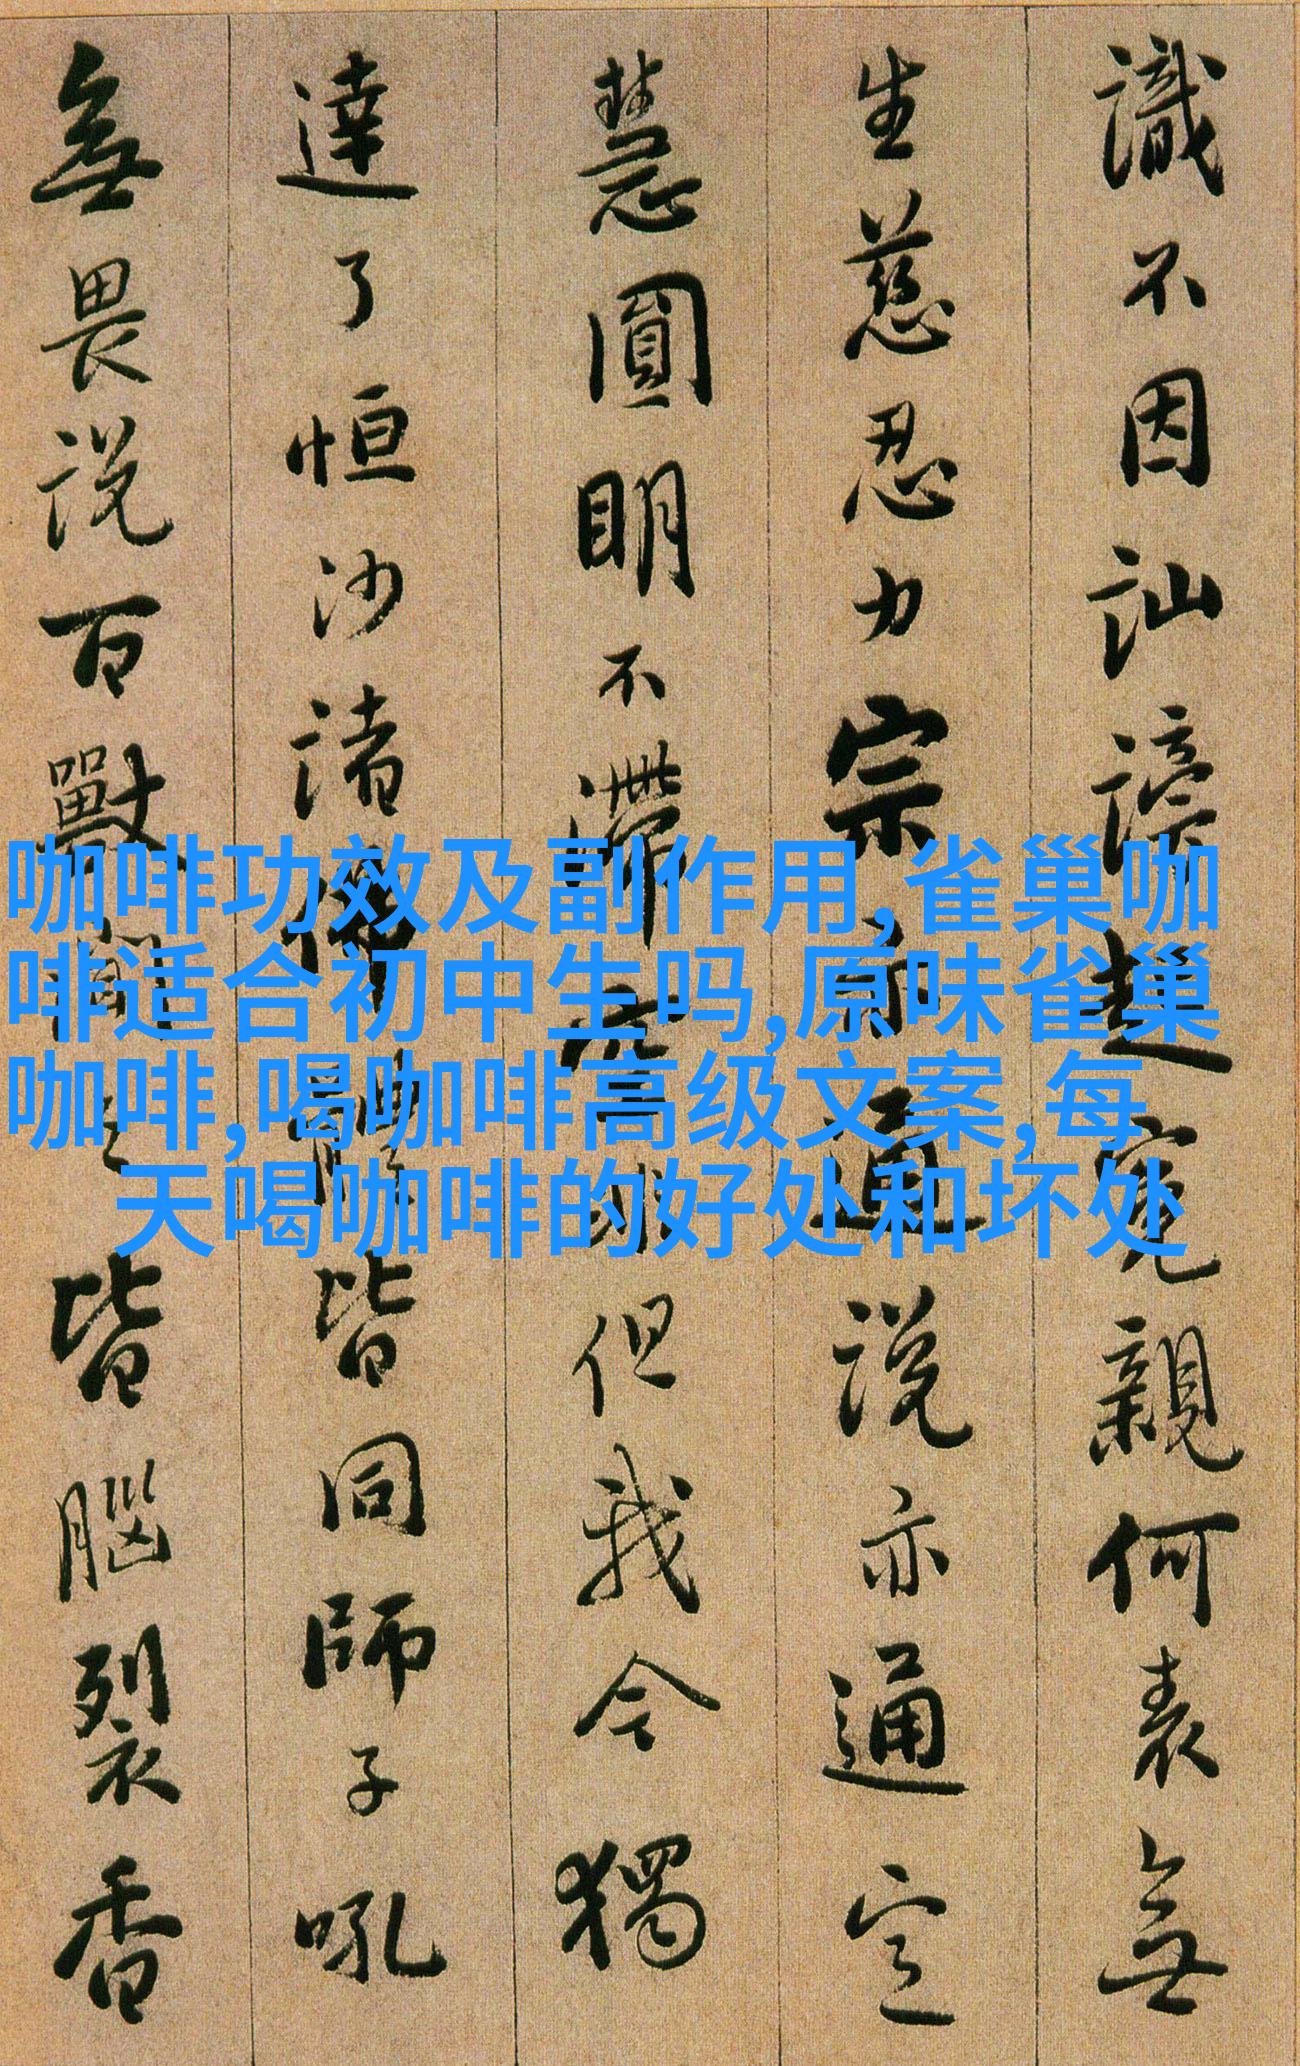 識不因訕謗起冤親何表無
生慈忍力宗亦通說亦通定
慧圓明不滯空非但我今獨
達了恒沙諸佛體皆同師子吼
無畏說百獸聞之皆腦裂香
咖啡功效及副作用,雀巢咖
啡适合初中生吗,原味雀巢
咖啡,喝咖啡高级文案,每
天喝咖啡的好处和坏处